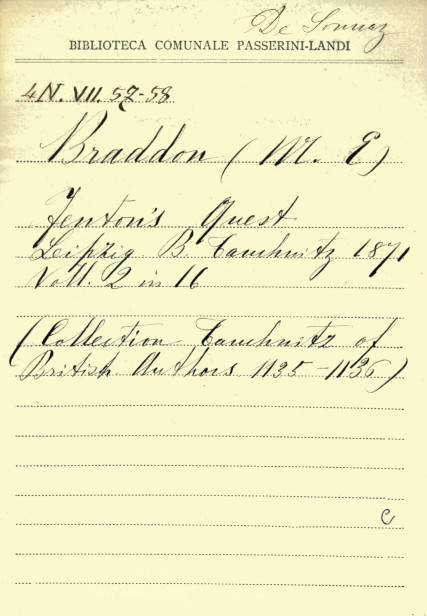 De Sonnaz
BIBLIOTECA COMUNALE PASSERINI-LANDI
4N. VII. 57-58
Braddon (M. E)
Fenton's Quest
Leipzig B. Tauchnitz 1871
Voll. 2 in 16
(Collection Tauchnitz of
British Authors 1135-1136)
C